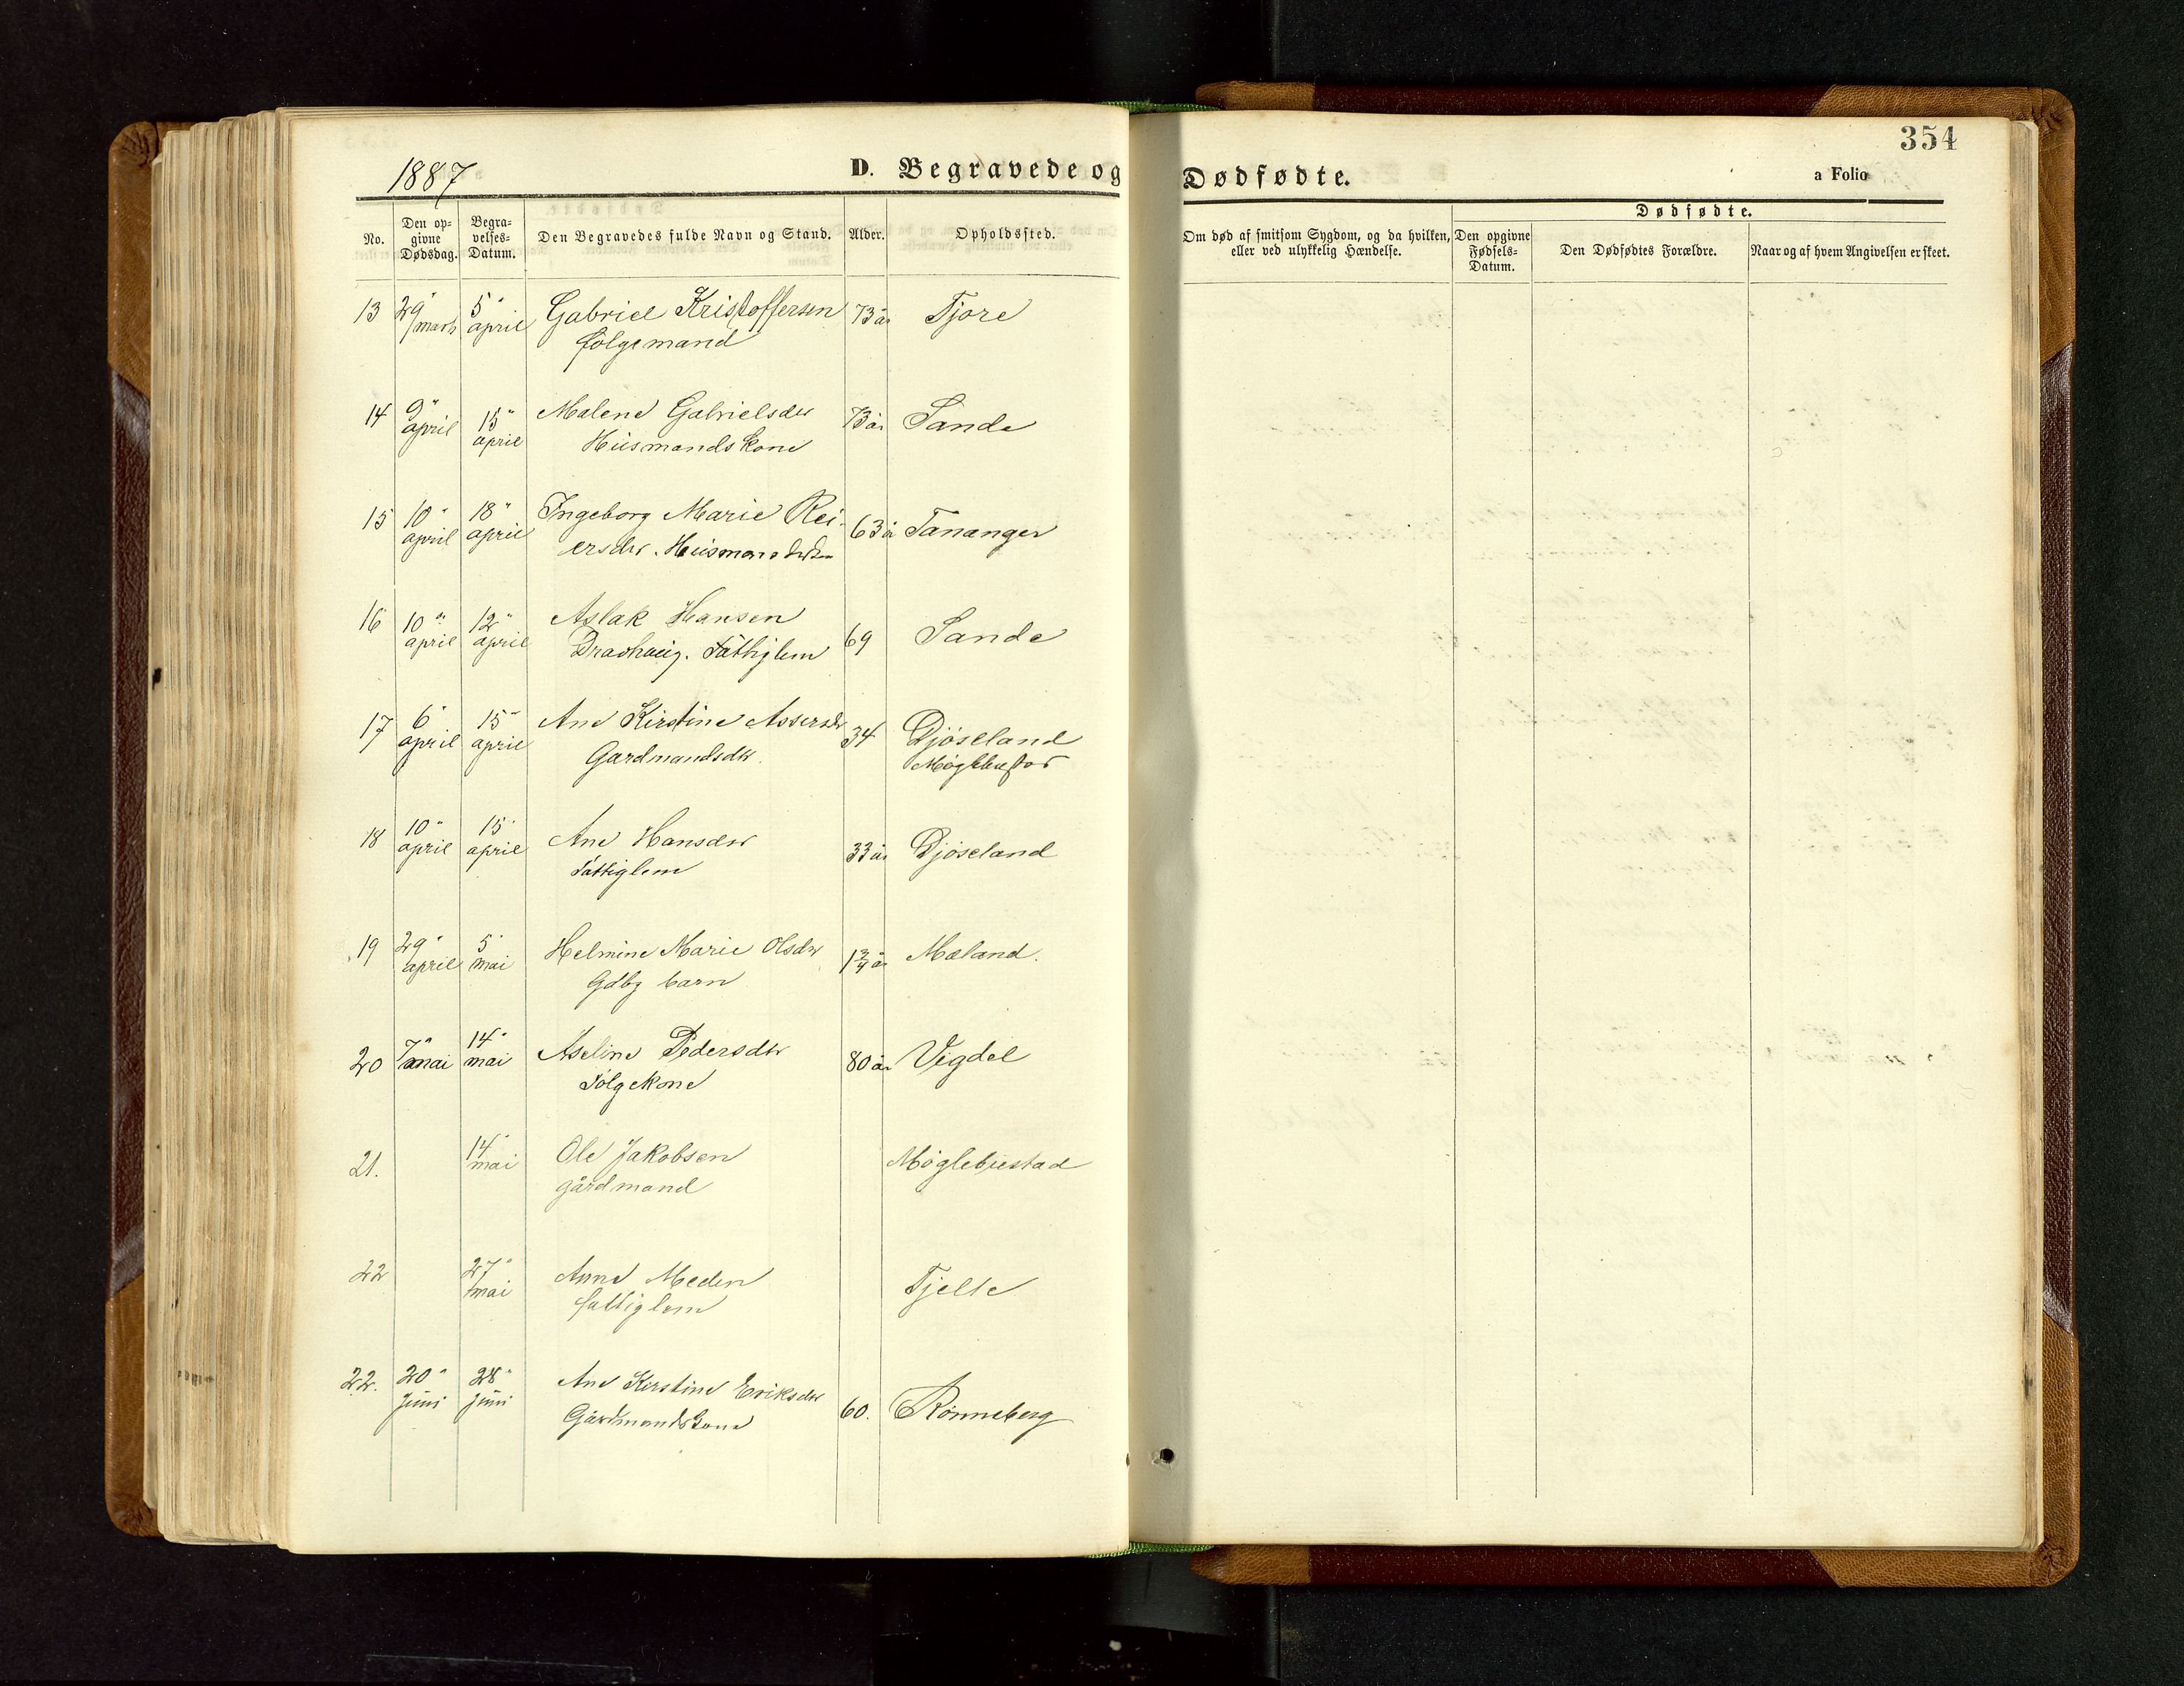 354
1887
D. Begravede og Dødfødte.
a Folio
No.
Den op-
givne
Dødsdag.
Begra-
velses-
Datum.
Den Begravedes fulde Navn og Stand.
Alder.
Opholdssted.
Om død af smitsom Sygdom, og da hvilken,
eller ved ulykkelig Hændelse.
Dødfødte.
Den opgivne
Fødsels-
Datum.
Den Dødfødtes Forældre.
Naar og af hvem Angivelsen er skeet.
13 29 marts 5 april Gabriel Kristoffersen 73 år Tjore
følgemand
14 9 april 15 april Malene Gabrielsdtr 73 år Sande
Husmandskone
15 10 april 18 april Ingeborg Marie Rei- 63 år Tananger
ersdtr. Husmands
16 10 april 12 april Aslak Hansen 69 Sande
Fattiglem
17 6 april 15 april Ane Kirstine Assersdtr 34 Djøseland
Gardmandsdtr.
18 10 april 15 april Ane Hansdtr 33 år Djøseland
Fattiglem
19 29 april 5 mai Helmine Marie Olsdtr 1 3/4 år Mæland.
Gdbg barn
20 7 mai 14 mai Aseline Pedersdtr 80 år Vigdel
Følgekone
21. 14 mai Ole Jakobsen Møglebustad
gårdmand
22 27 mai Anne Meden Tjelte
fattiglem
22. 20 Juni 28 Juni Ane Kirstine Eriksdtr 60. Rønneberg
Gårdmandskone